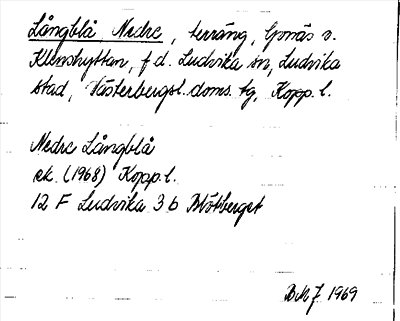 Långblå Nedre, terräng, Gonäs v.
Klenshyttan, f d. Ludvika sn, Ludvika
stad, Västerbergsl. doms. tg, Kopp. l.
Nedre Långblå
ek. (1968) Kopp. l.
12 F Ludvika 3 b Blötberget
1969